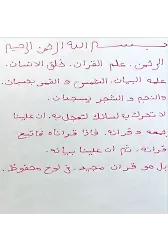 بسم الله الرحمن الرحيم
الرحمن. علم القرآن. خلق الانسان.
علمه البيان. الشمس و القمر بحسبان.
والنجم و الشجر يسجدان.
لا تحرك به لسانك لتعجل به. ان علينا
جمعه و قرانه. فاذا قراناه فاتبع
قرانه. ثم ان علينا بيانه.
بل هو قران مجيد. في لوح محفوظ.